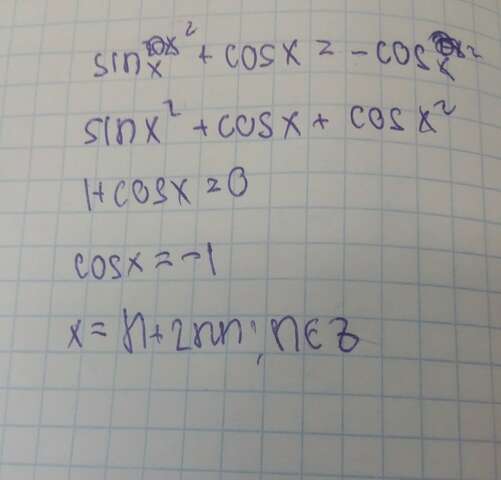 sin x² + cosx = -cos x²
sinx² + cosx + cos x²
1+cosx=0
cosx=-1
x= π+2πn; n∈Z